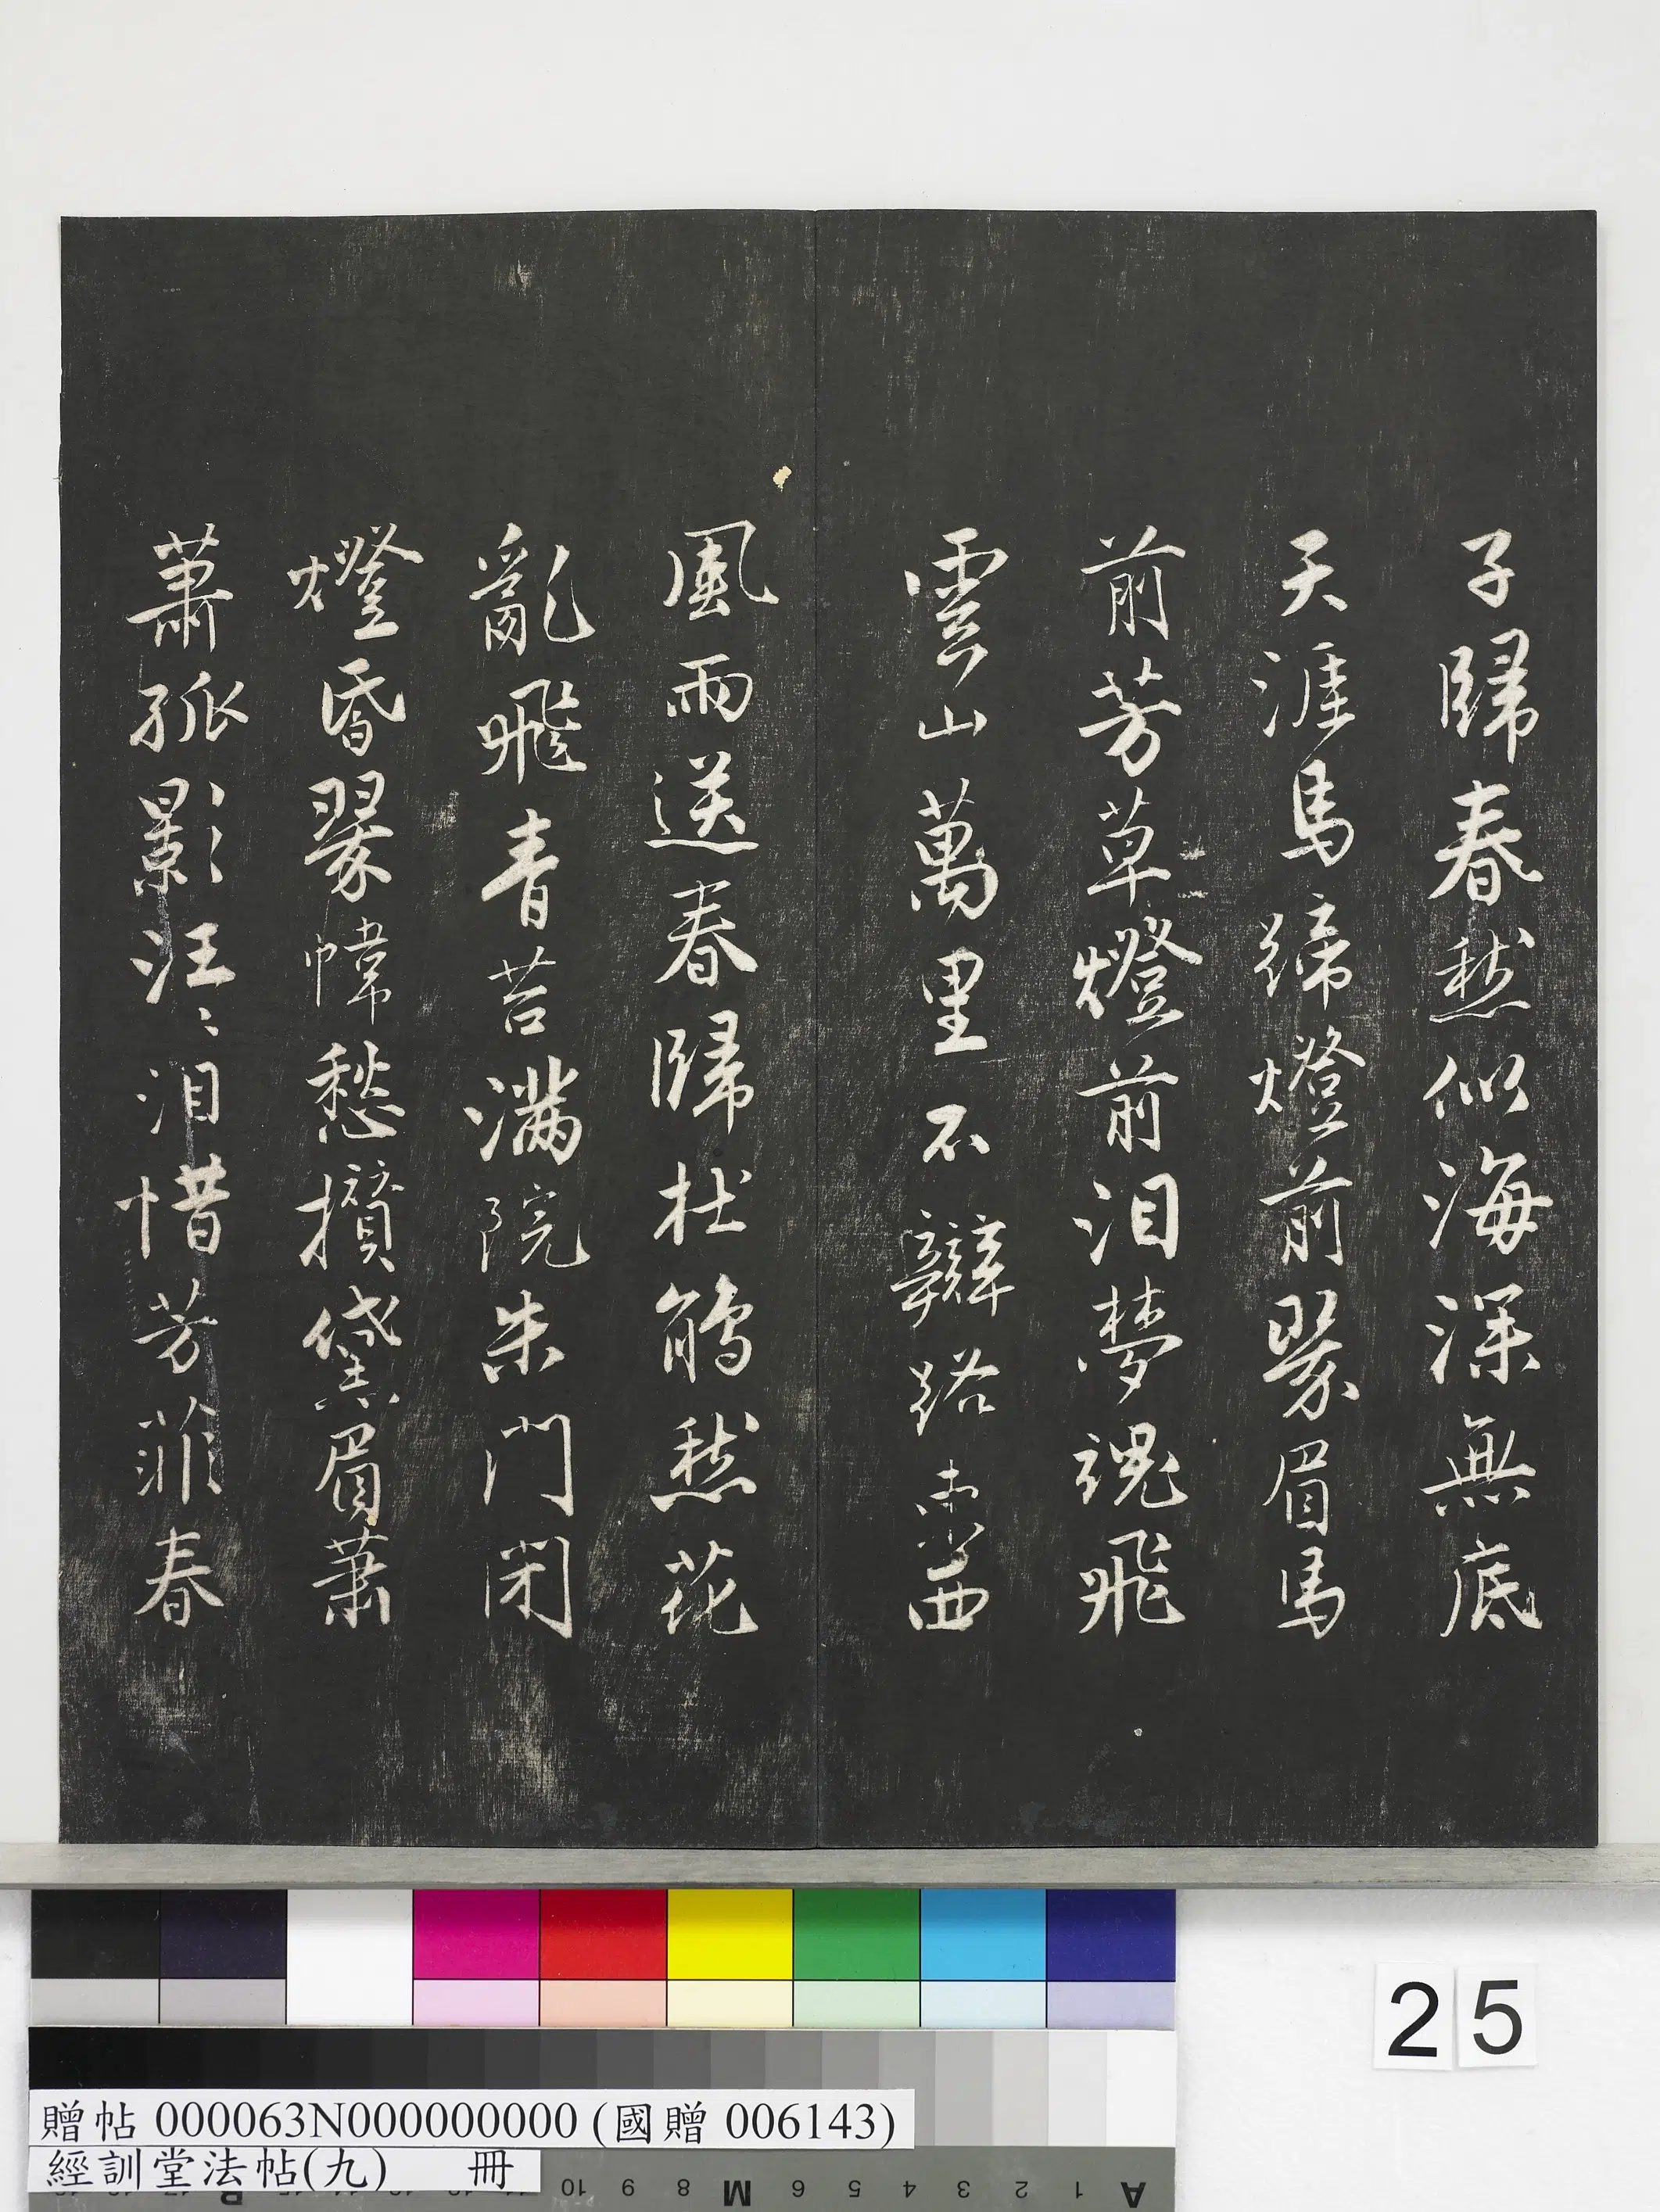 子歸春愁似海深無底
天涯馬蹄燈前翠眉馬
前芳草燈前泪夢魂飛
雲山萬里不辯路西
風雨送春歸杜鵑愁花
亂飛青苔滿院朱門閉
燈昏翠幃愁攢黛眉蕭
蕭孤影汪〻泪惜芳菲春
25
贈帖 000063N000000000 (國贈 006143)
經訓堂法帖(九) 冊
10 9 8 M 6 5 4 3 2 1 A